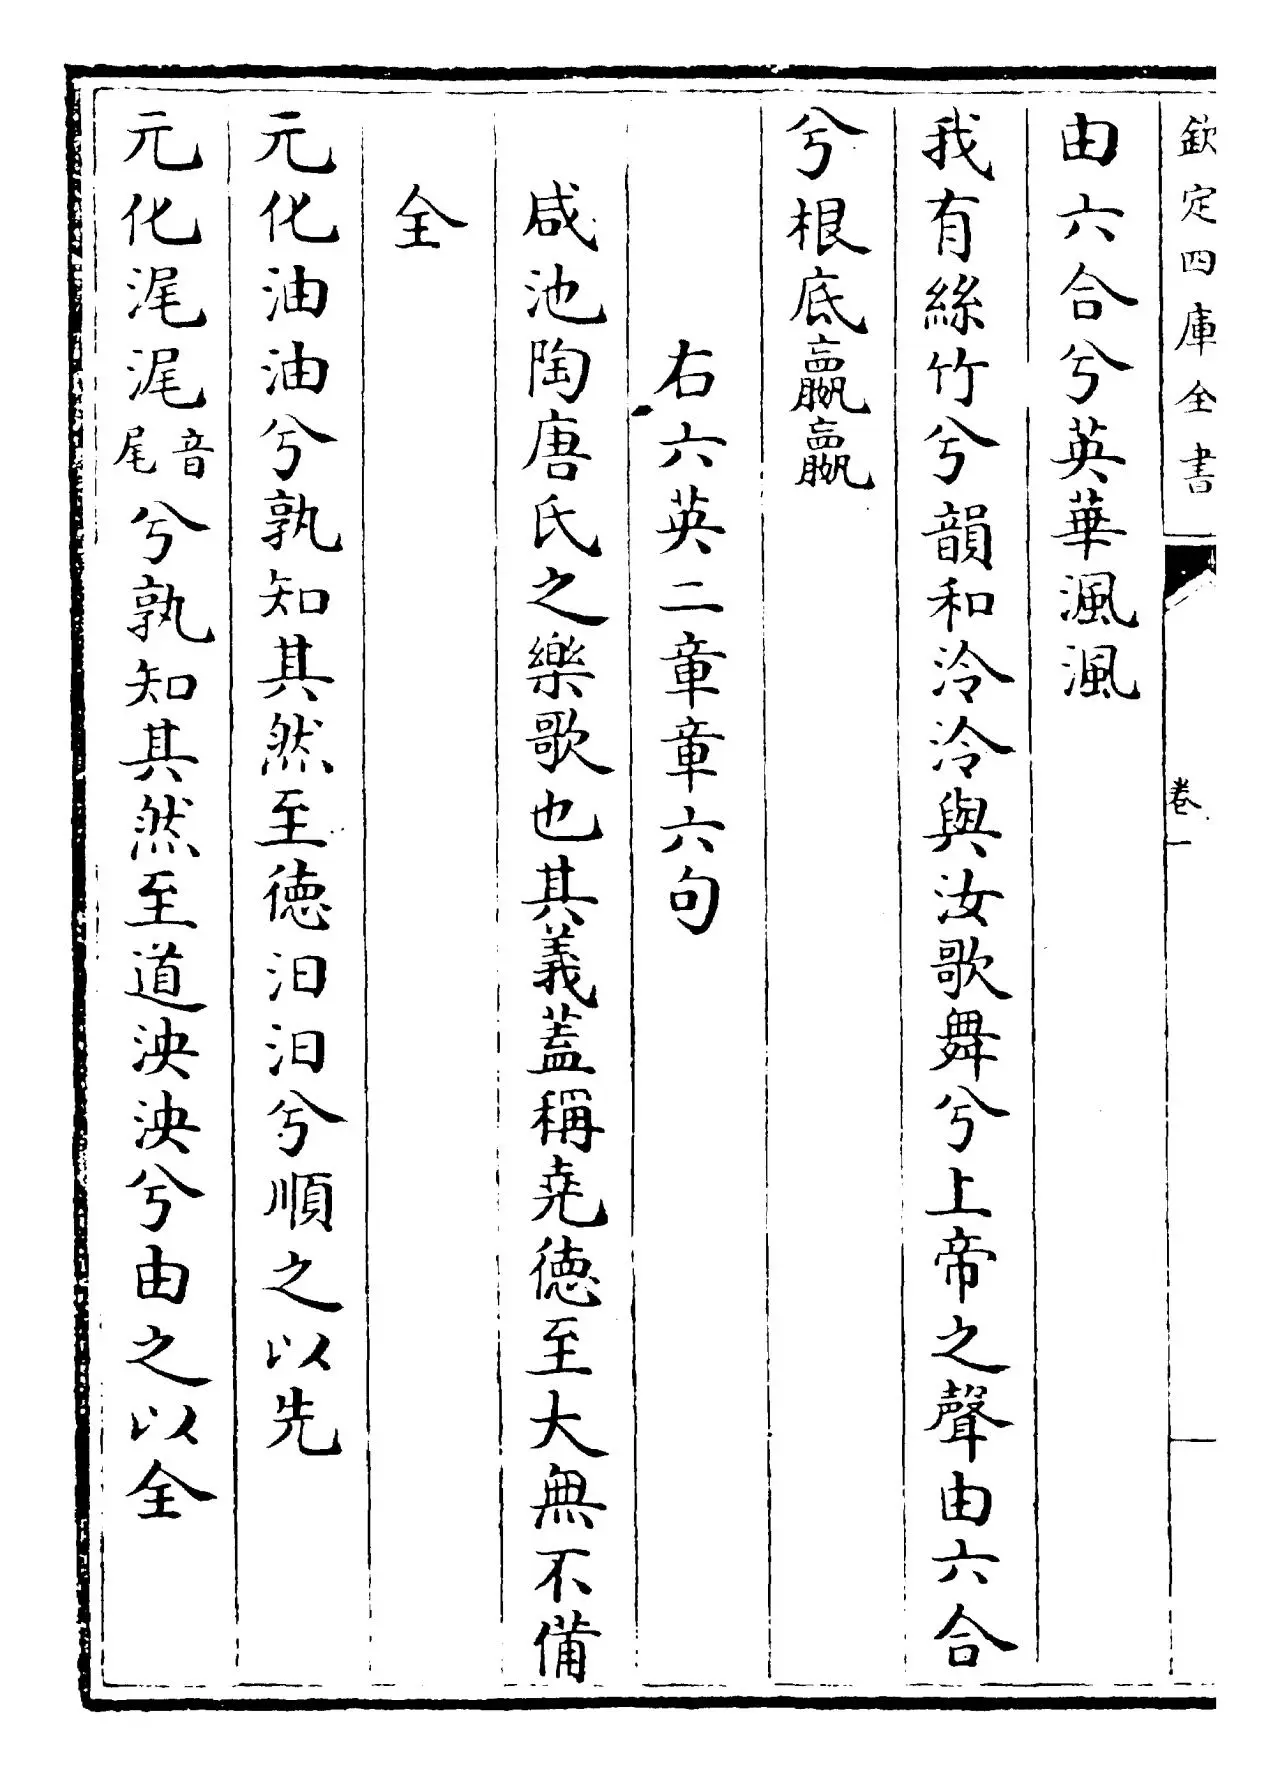 欽定四庫全書
卷一
由六合兮英華渢渢
我有絲竹兮韻和泠泠與汝歌舞兮上帝之聲由六合
兮根底羸羸
右六英二章章六句
咸池陶唐氏之樂歌也其義蓋稱堯德至大無不備
全
元化油油兮孰知其然至德汩汩兮順之以先
元化浘浘音尾兮孰知其然至道泱泱兮由之以全